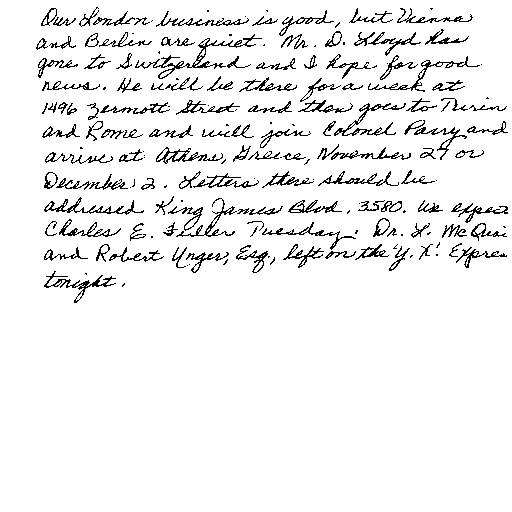 Our London business is good, but Vienna
and Berlin are quiet. Mr. D. Lloyd has
gone to Switzerland and I hope for good
news. He will be there for a week at
1496 Zermott Street and then goes to Turin
and Rome and will join Colonel Parry and
arrive at Athens, Greece, November 27 or
December 2. Letters there should be
addressed King James Blvd. 3580. We expec
Charles E. Fuller Tuesday. Dr. L. McQuai
and Robert Unger, Esq., left on the 'Y.X.' Expres
tonight.